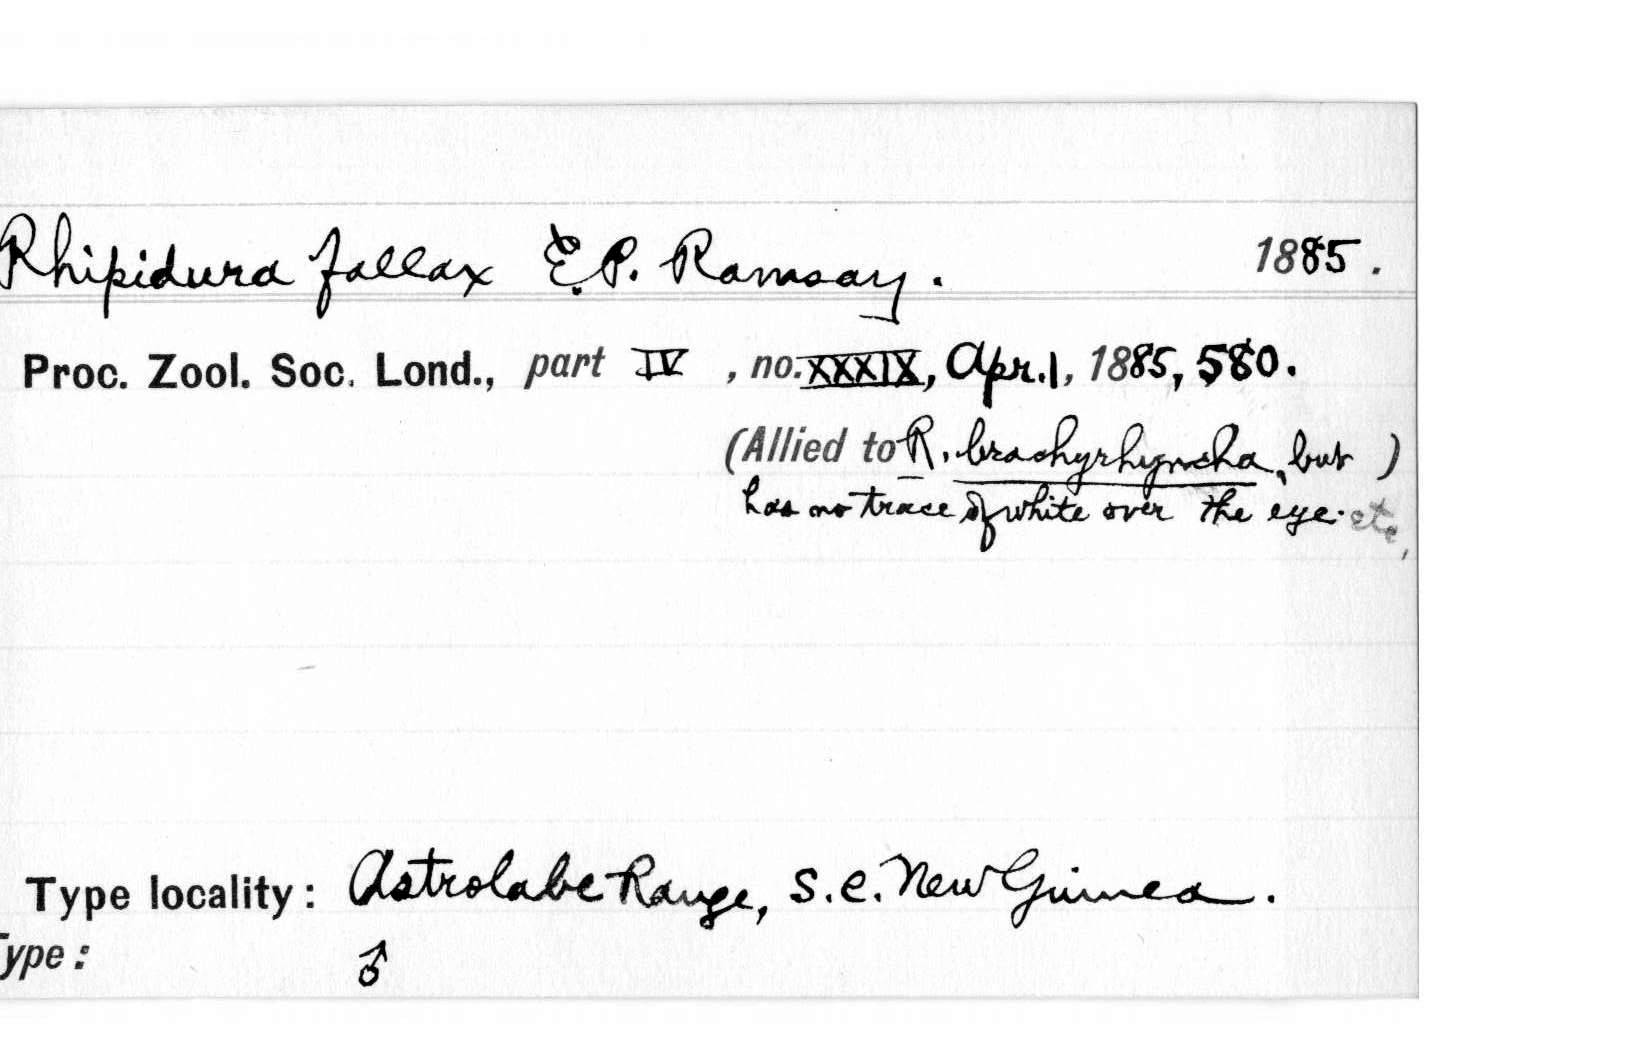 Rhipidura fallax E.P. Ramsay. 1885.
Proc. Zool. Soc. Lond., part IV, no. XXXIX, Apr. 1, 1885, 580.
(Allied to R. brachyrhyncha, but )
has no trace of white over the eye. etc,
Type locality: Astrolabe Range, S.E. New Guinea.
Type: ♂